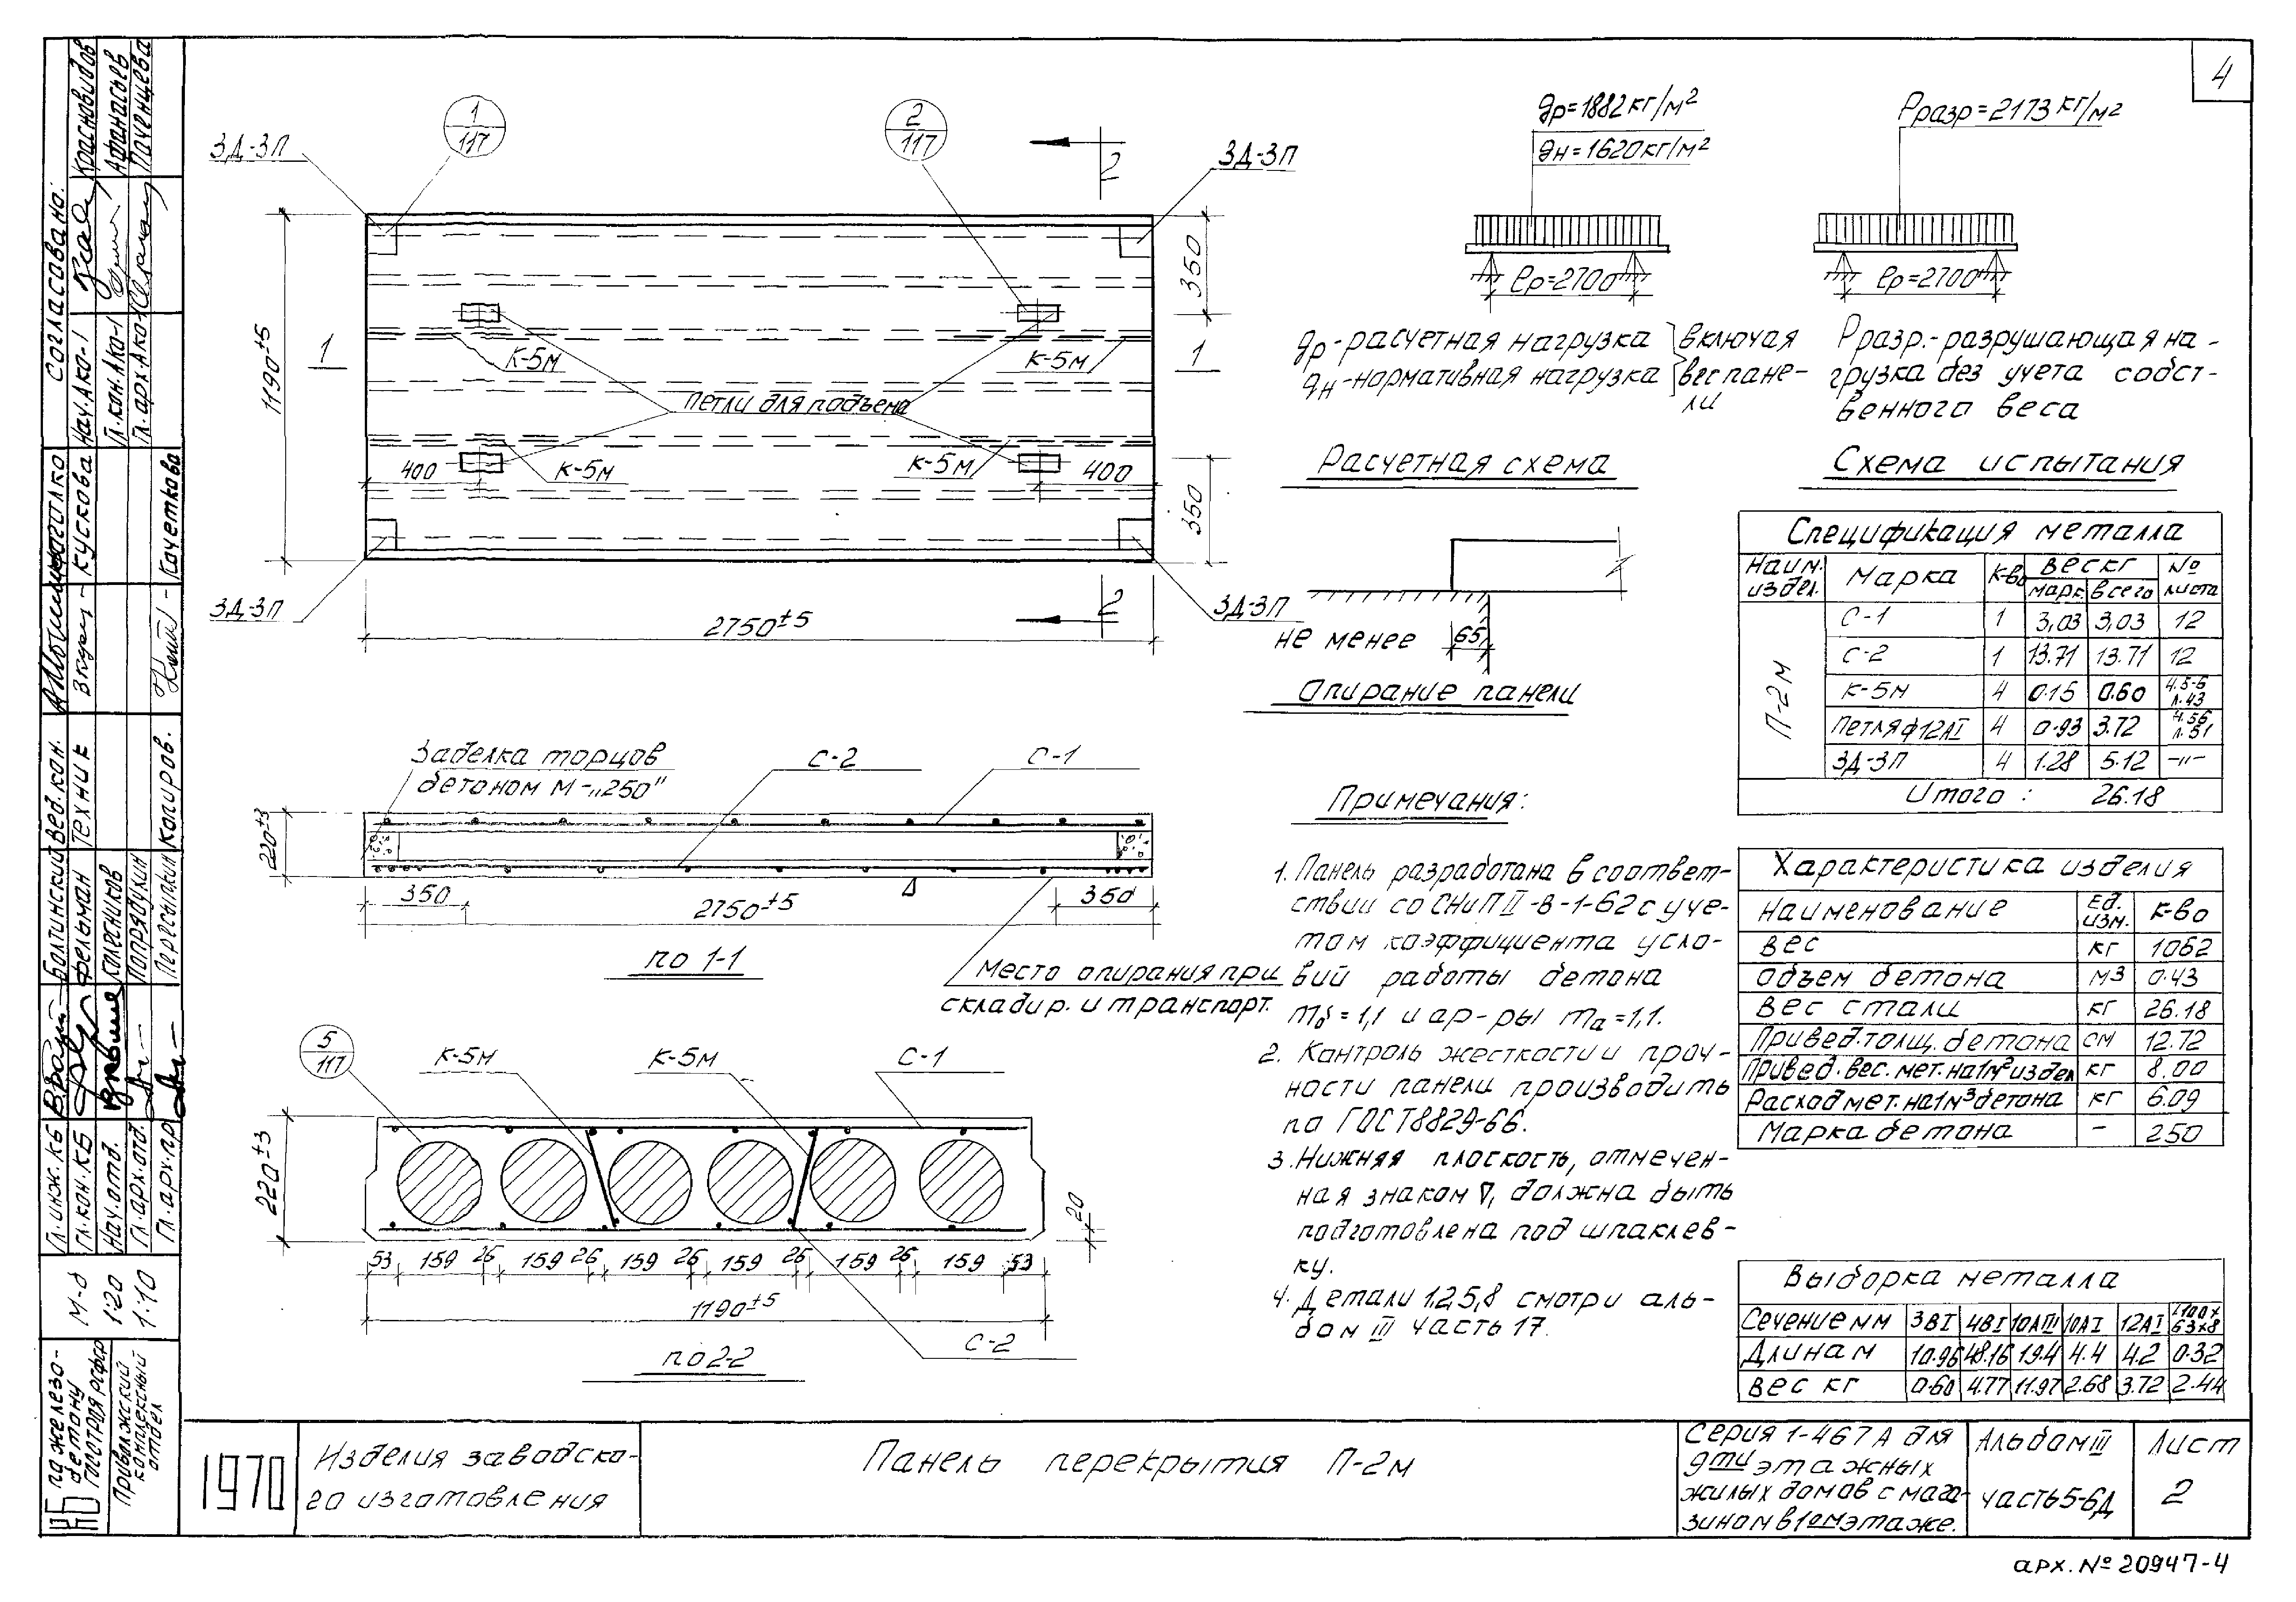 4
1
117
2
117
ЗД-3П
ЗД-3П
2
1190±5
350
1
К-5м
К-5м
1
петли для подъема
400
К-5м
К-5м
400
350
ЗД-3П
ЗД-3П
2
2750±5
gр=1882кг/м²
gн=1620кг/м²
ℓр=2700
gр-расчетная нагрузка
gн-нормативная нагрузка
включая
вес пане-
ли
Расчетная схема
Рразр=2173кг/м²
ℓр=2700
Рразр.-разрушающая на-
грузка без учета собст-
венного веса
Схема испытания
не менее 65
Опирание панели
Спецификация металла
Наим. издел. Марка К-во вес кг № листа
марк. всего
П-2м
С-1 1 3,03 3,03 12
С-2 1 13.71 13.71 12
К-5м 4 0.15 0.60 ч.5-6 л.43
Петля ф12АI 4 0.93 3.72 ч.5б л.51
ЗД-3П 4 1.28 5.12 -"-
Итого: 26.18
Заделка торцов
бетоном М-„250"
С-2
С-1
220±3
350
2750±5
350
по 1-1
Место опирания при
складир. и транспорт.
5
117
К-5м
К-5м
С-1
220±3
20
53 159 26 159 26 159 26 159 26 159 26 159 53
1190±5
С-2
по 2-2
Примечания:
1. Панель разработана в соответ-
ствии со СНиП II-В-1-62 с уче-
том коэффициента усло-
вий работы бетона
mб=1,1 и ар-ры mа=1,1.
2. Контроль жесткости и проч-
ности панели производить
по ГОСТ8829-66.
3. Нижняя плоскость, отмечен-
ная знаком ∇, должна быть
подготовлена под шпаклев-
ку.
4. Детали 1,2,5,8 смотри аль-
бом III часть 17.
Характеристика изделия
Наименование Ед. изм. К-во
Вес кг 1062
Объем бетона м3 0.43
Вес стали кг 26.18
Привед.толщ.бетона см 12.72
Привед.вес.мет.на1м²издел кг 8.00
Расход мет.на1м³бетона кг 6.09
Марка бетона - 250
Выборка металла
Сечение мм 3ВI 4ВI 10АIII 10АI 12АI L100х63х8
Длина м 10.96 48.16 19.4 4.4 4.2 0.32
Вес кг 0.60 4.77 11.97 2.68 3.72 2.44
Согласовано:
Нач.Ако-1 Красновидов
Гл.кон.Ако-1 Афанасьев
Гл.арх.Ако-1 Паченцева
Вед.кон.
Техник Кускова
Копиров. Качеткова
Гл.инж.КБ Болтинский
Гл.кон.КБ Фельман
Нач.отд. Колесников
Гл.арх.отд. Попрядухин
Гл.арх.пр. Пересыпкин
М-б
1:20
1:10
КБ по железо-
бетону
Госстроя РСФСР
Приволжский
комплексный
отдел
1970
Изделия заводско-
го изготовления
Панель перекрытия П-2м
Серия 1-467А для
9ти этажных
жилых домов с мага-
зином в 1ом этаже.
Альбом III
часть 5-6Д
Лист
2
арх.№ 20947-4